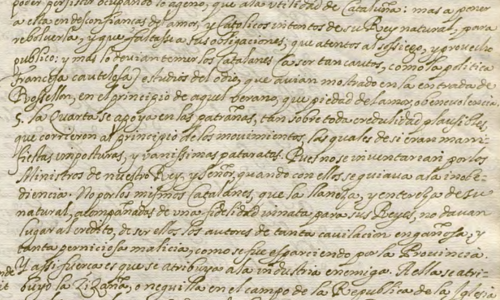 poder por sitiar ocupando lo ageno, que a la utilidad de Cataluña: mas a poner
a esta en desconfianças del amor, y Catolicos intentos de su Rey natural, para
rebolverla, y que faltasse a sus obligaciones, que atentos al sosiego, y provecho
publico; y mas lo devian temer los Catalanes (a ser tan cautos, como la politica
francesa cautelosa) estudios del odio, que avian mostrado en la entrada de
Rosellon, en el principio de aquel Verano, que piedad del amor, o benevolencia
5. la Quarta se apoya en las patrañas, tan sobre toda credulidad plausibles
que corrieron al principio de los movimientos, las quales de si eran mani-
fiestas imposturas, y vanissimas pataratas. Pues no se inventarian por los
Ministros de nuestro Rey, y Señor, quando con ellos se guiava a la inobe-
diencia. No por los mismos Catalanes, que la llaneza, y entereza de su
natural, acompañadas de una fidelidad innata para sus Reyes, no davan
lugar al credito, de ser ellos los autores de tanta cavilacion engañosa, y
tanta perniciosa malicia, como se fue esparciendo por la Provincia.
Y assi fuerça es que se atribuya a la industria enemiga. A ella se atri-
buyo la Zizaña, o neguilla en el campo de la Republica de la Iglesia